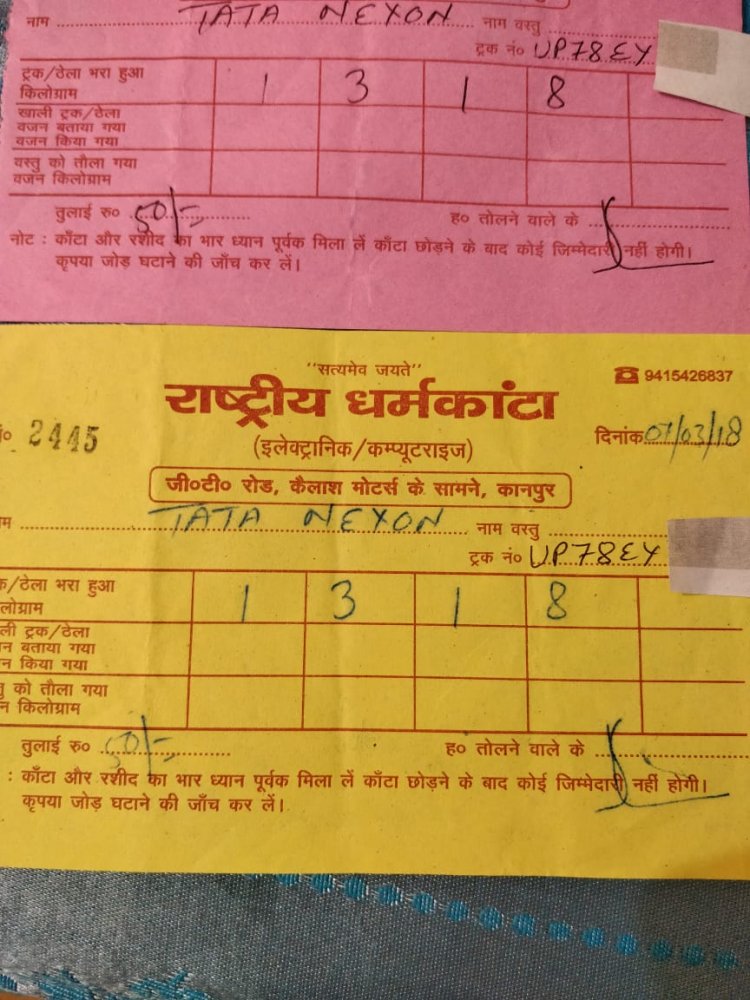 नाम TATA NEXON नाम वस्तु
ट्रक नं० UP78EY
ट्रक/ठेला भरा हुआ
किलोग्राम 1 3 1 8
खाली ट्रक/ठेला
वजन बताया गया
वजन किया गया
वस्तु को तौला गया
वजन किलोग्राम
तुलाई रु० 50/- ह० तोलने वाले के
नोट : काँटा और रशीद का भार ध्यान पूर्वक मिला लें काँटा छोड़ने के बाद कोई जिम्मेदारी नहीं होगी।
कृपया जोड़ घटाने की जाँच कर लें।
"सत्यमेव जयते" ☎ 9415426837
राष्ट्रीय धर्मकांटा
नं० 2445 (इलेक्ट्रानिक/कम्प्यूटराइज) दिनांक 07/03/18
जी०टी० रोड, कैलाश मोटर्स के सामने, कानपुर
म TATA NEXON नाम वस्तु
ट्रक नं० UP78EY
क/ठेला भरा हुआ
लोग्राम 1 3 1 8
ली ट्रक/ठेला
न बताया गया
न किया गया
तु को तौला गया
न किलोग्राम
तुलाई रु० 50/- ह० तोलने वाले के
: काँटा और रशीद का भार ध्यान पूर्वक मिला लें काँटा छोड़ने के बाद कोई जिम्मेदारी नहीं होगी।
कृपया जोड़ घटाने की जाँच कर लें।